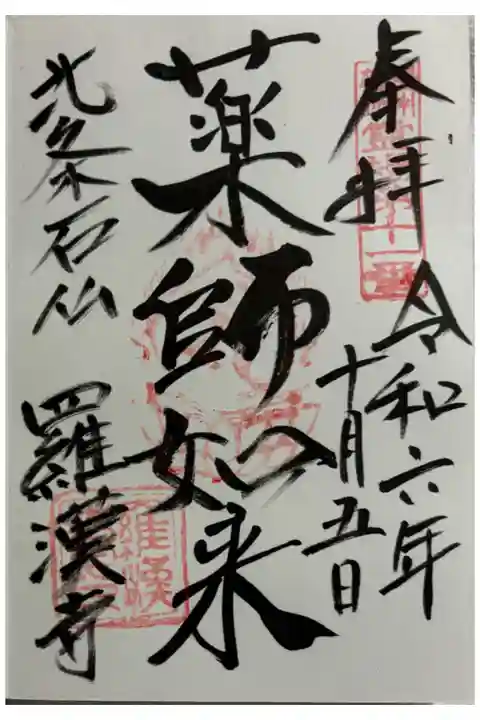 奉拝
令和六年
十月五日
薬師如来
北条石仏
羅漢寺